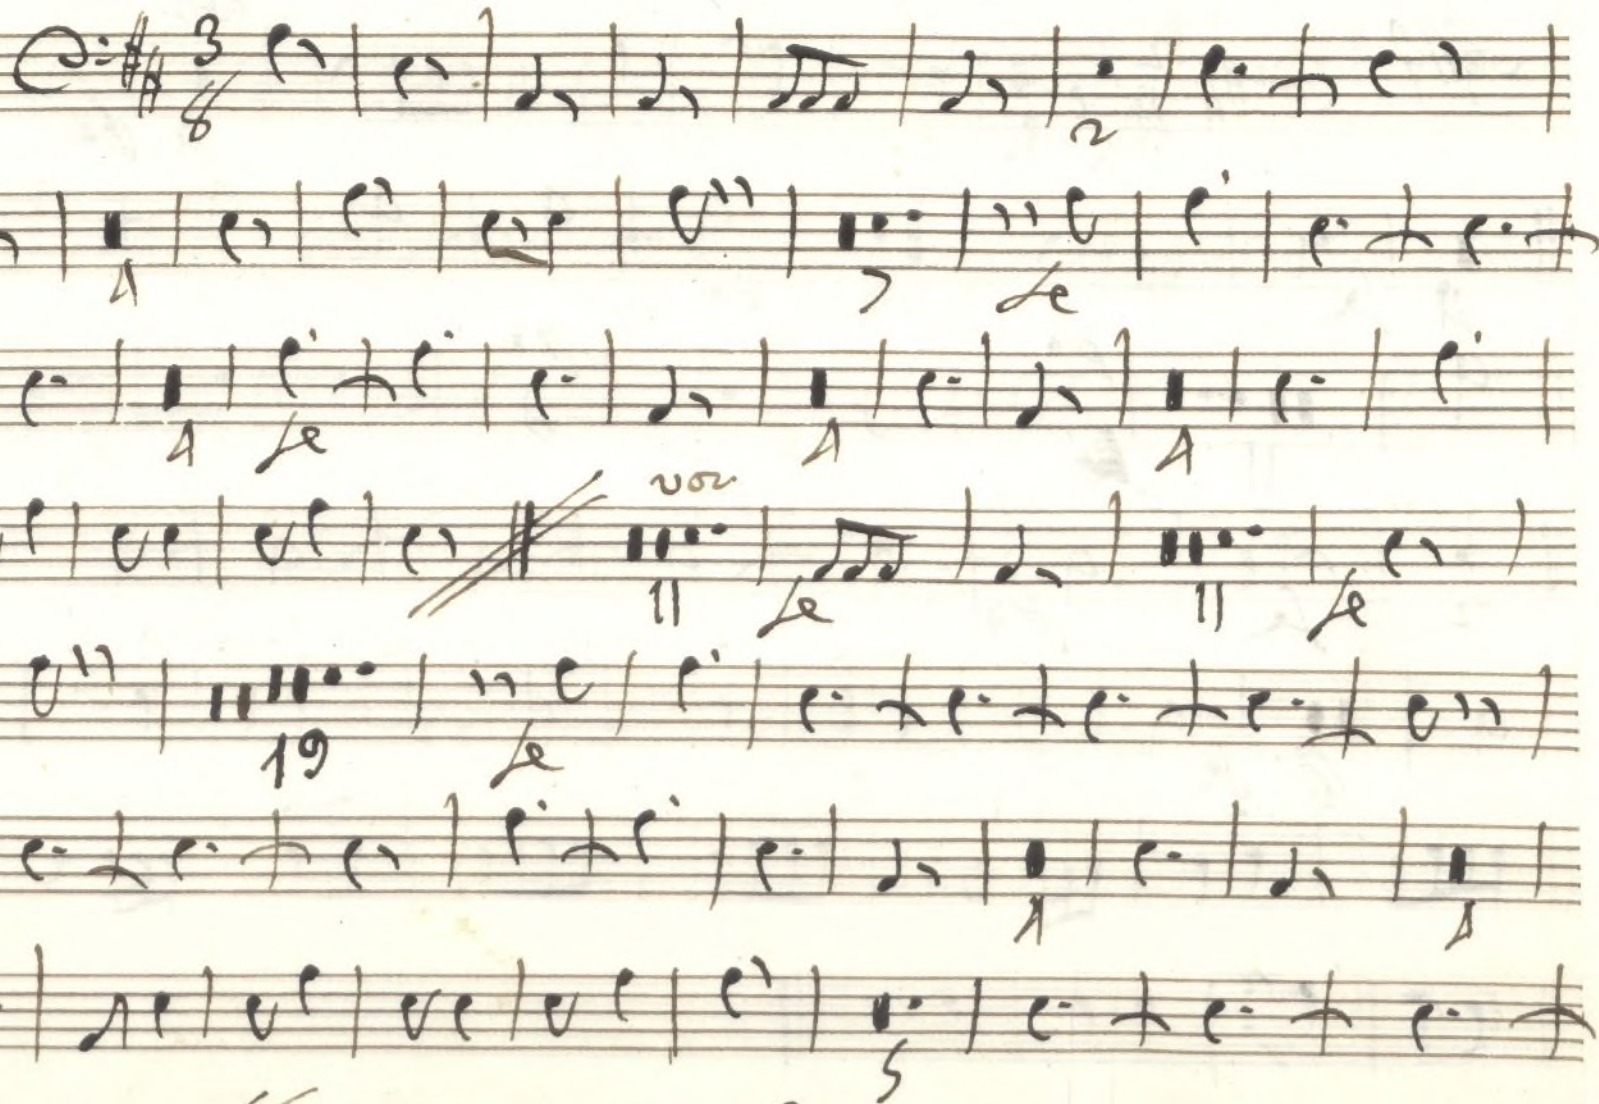 3
8
2
4 7 fe
4 fe 4 4
vor
11 fe 11 fe
19 fe
4 4
5